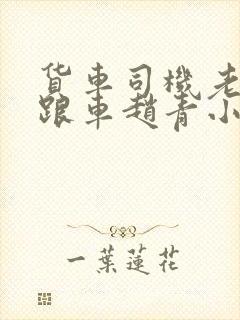 货車司機老
跟車趙青小
一葉蓮花